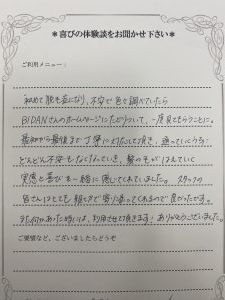 ＊喜びの体験談をお聞かせ下さい＊
ご利用メニュー：
初めて脱毛症になり、不安で色々調べていたら
BIDANさんのホームページにたどりついて、一度見てもらうことに。
最初から最後まで丁寧に対応して頂き、通っていくうちに
どんどん不安もなくなっていき、髪の毛がはえていく
実感と喜びを一緒に感じてくれていました。スタッフの
皆さんはとても親切で寄り添ってくれるので良かったです。
また何かあった時には、利用させて頂きます！ありがとうございました。
ご要望など、ございましたらどうぞ